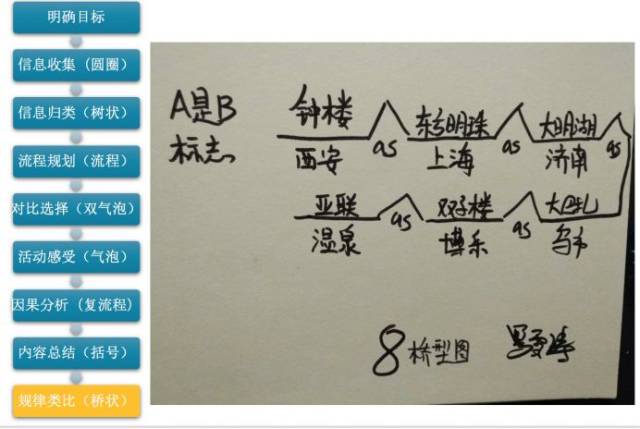 明确目标
信息收集（圆圈）
信息归类（树状）
流程规划（流程）
对比选择（双气泡）
活动感受（气泡）
因果分析（复流程）
内容总结（括号）
规律类比（桥状）
A是B
标志
钟楼 东方明珠 大明湖
西安 as 上海 as 济南 as
亚联 双子楼 大巴扎
温泉 as 博乐 as 乌市
8 桥型图